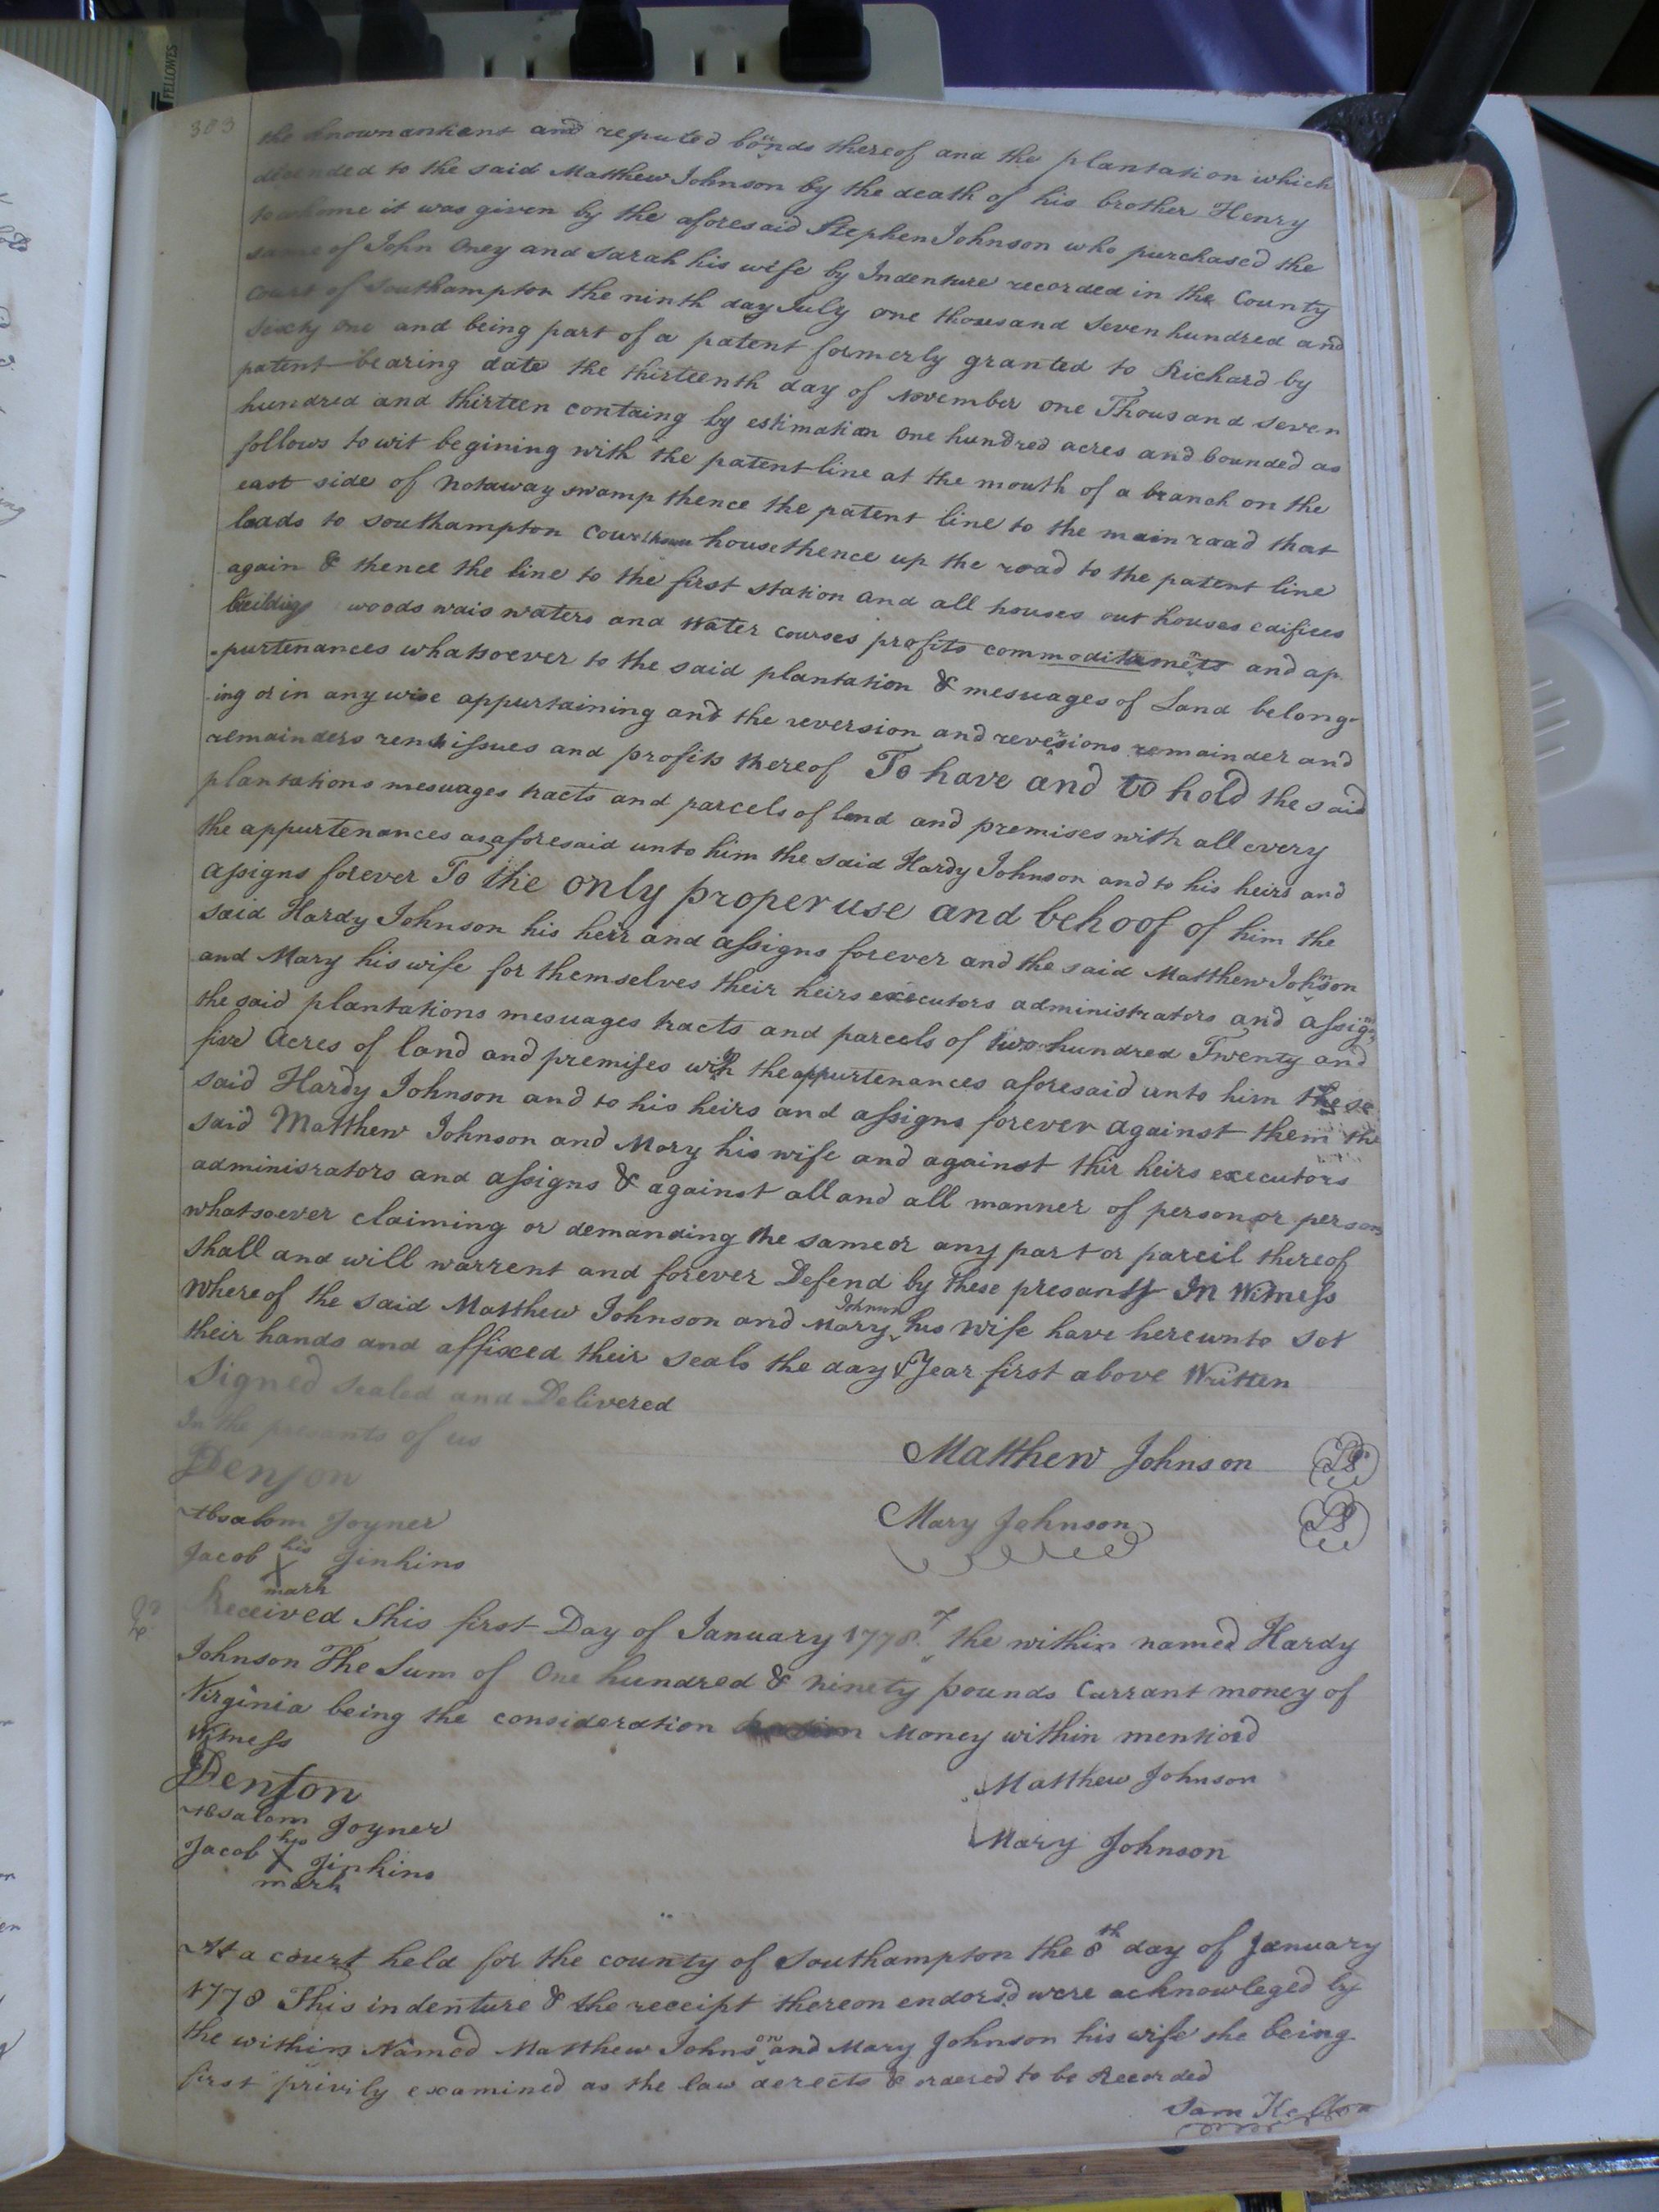 FELLOWES
303
the known antient and reputed bounds thereof and the plantation which
decended to the said Matthew Johnson by the death of his brother Henry
to whome it was given by the aforesaid Stephen Johnson who purchased the
same of John Oney and Sarah his wife by Indenture recorded in the County
Court of Southampton the ninth day July one thousand Seven hundred and
Sixty one and being part of a patent formerly granted to Richard by
patent bearing date the thirteenth day of November one Thousand seven
hundred and thirteen containg by estimation one hundred acres and bounded as
follows to wit begining with the patent line at the mouth of a branch on the
east side of Notaway swamp thence the patent line to the main road that
leads to Southampton Court house thence up the road to the patent line
again & thence the line to the first station and all houses out houses edifices
buildings woods wais waters and Water courses profits and ap
-purtenances whatsoever to the said plantation & mesuages of Land belong-
ing or in any wise appurtaining and the reversion and reversions remainder and
remainders rents issues and profits thereof To have and to hold the said
plantations mesuages tracts and parcels of land and premises with all every
the appurtenances as aforesaid unto him the said Hardy Johnson and to his heirs and
assigns forever To the only proper use and behoof of him the
said Hardy Johnson his heir and assigns forever and the said Matthew Johnson
and Mary his wife for themselves their heirs executors administrators and assigns
the said plantations mesuages tracts and parcels of two hundred Twenty and
five Acres of land and premises with the appurtenances aforesaid unto him the
said Hardy Johnson and to his heirs and assigns forever against them the
said Matthew Johnson and Mary his wife and against thir heirs executors
adminisrators and assigns & against all and all manner of person or persons
whatsoever claiming or demanding the same or any part or parcil thereof
shall and will warrent and forever Defend by these presants In Witness
Whereof the said Matthew Johnson and Mary Johnson his Wife have hereunto set
their hands and affixed their seals the day & Year first above Written
Signed Sealed and Delivered
In the presants of us
Denson
Matthew Johnson LS
Absalom Joyner
Mary Johnson LS
Jacob his X mark Jinkins
Received this first Day of January 1778 the within named Hardy
Johnson The Sum of One hundred & Ninety pounds Currant money of
Virginia being the consideration Money within mentiond
Witness
Denson
Matthew Johnson
Absalom Joyner
Mary Johnson
Jacob his X mark Jinkins
At a court held for the county of Southampton the 8th day of January
1778 This indenture & the receipt thereon endorsd were acknowleged by
the within Named Matthew Johnson and Mary Johnson his wife she being
first privily examined as the law derects & ordered to be Recorded
Sam Kello